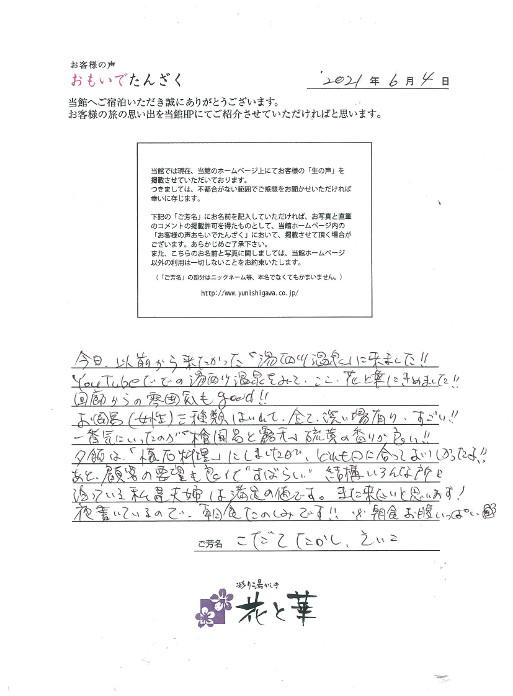 お客様の声
おもいでたんざく
2021年6月4日
当館へご宿泊いただき誠にありがとうございます。
お客様の旅の思い出を当館HPにてご紹介させていただければと思います。
当館では現在、当館のホームページ上にてお客様の「生の声」を
掲載させていただいております。
つきましては、不都合がない範囲でご感想をお聞かせいただければ
幸いに存じます。
下記の「ご芳名」にお名前を記入していただければ、お写真と直筆
のコメントの掲載許可を得たものとして、当館ホームページ内の
「お客様の声おもいでたんざく」において、掲載させて頂く場合が
ございます。あらかじめご了承下さい。
また、こちらのお名前と写真に関しましては、当館ホームページ
以外の利用は一切しないことをお約束いたします。
（「ご芳名」の部分はニックネーム等、本名でなくてもかまいません。）
http://www.yunishigawa.co.jp/
今日、以前から来たかった「湯西川温泉」に来ました!!
YouTubeなどでの湯西川温泉をみて、ここ、花と華にきめました!!
回廊からの雰囲気もgood!!
お風呂(女性)三種類はいれて、全て、洗い場有り、すごい!!
一番気にいったのが檜風呂と露天、硫黄の香りが良い!!
夕飯は、「懐石料理」にしましたが、どれも口に合っておいしかったよ!!
あと、顧客の要望も良くて"すばらしい" 結構いろんな所を
泊っている私共夫婦は満足の値です。また来たいと思います!
夜書いているので、朝食たのしみです!! ※朝食お腹いっぱい
ご芳名 こだてたかし、えいこ
彩り湯かしき
花と華